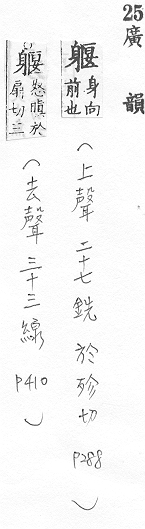 25 廣韻
躽 身向前也 (上聲 二十七銑 於殄切 P288)
躽 怒 於扇切三 (去聲 三十三線 P410)